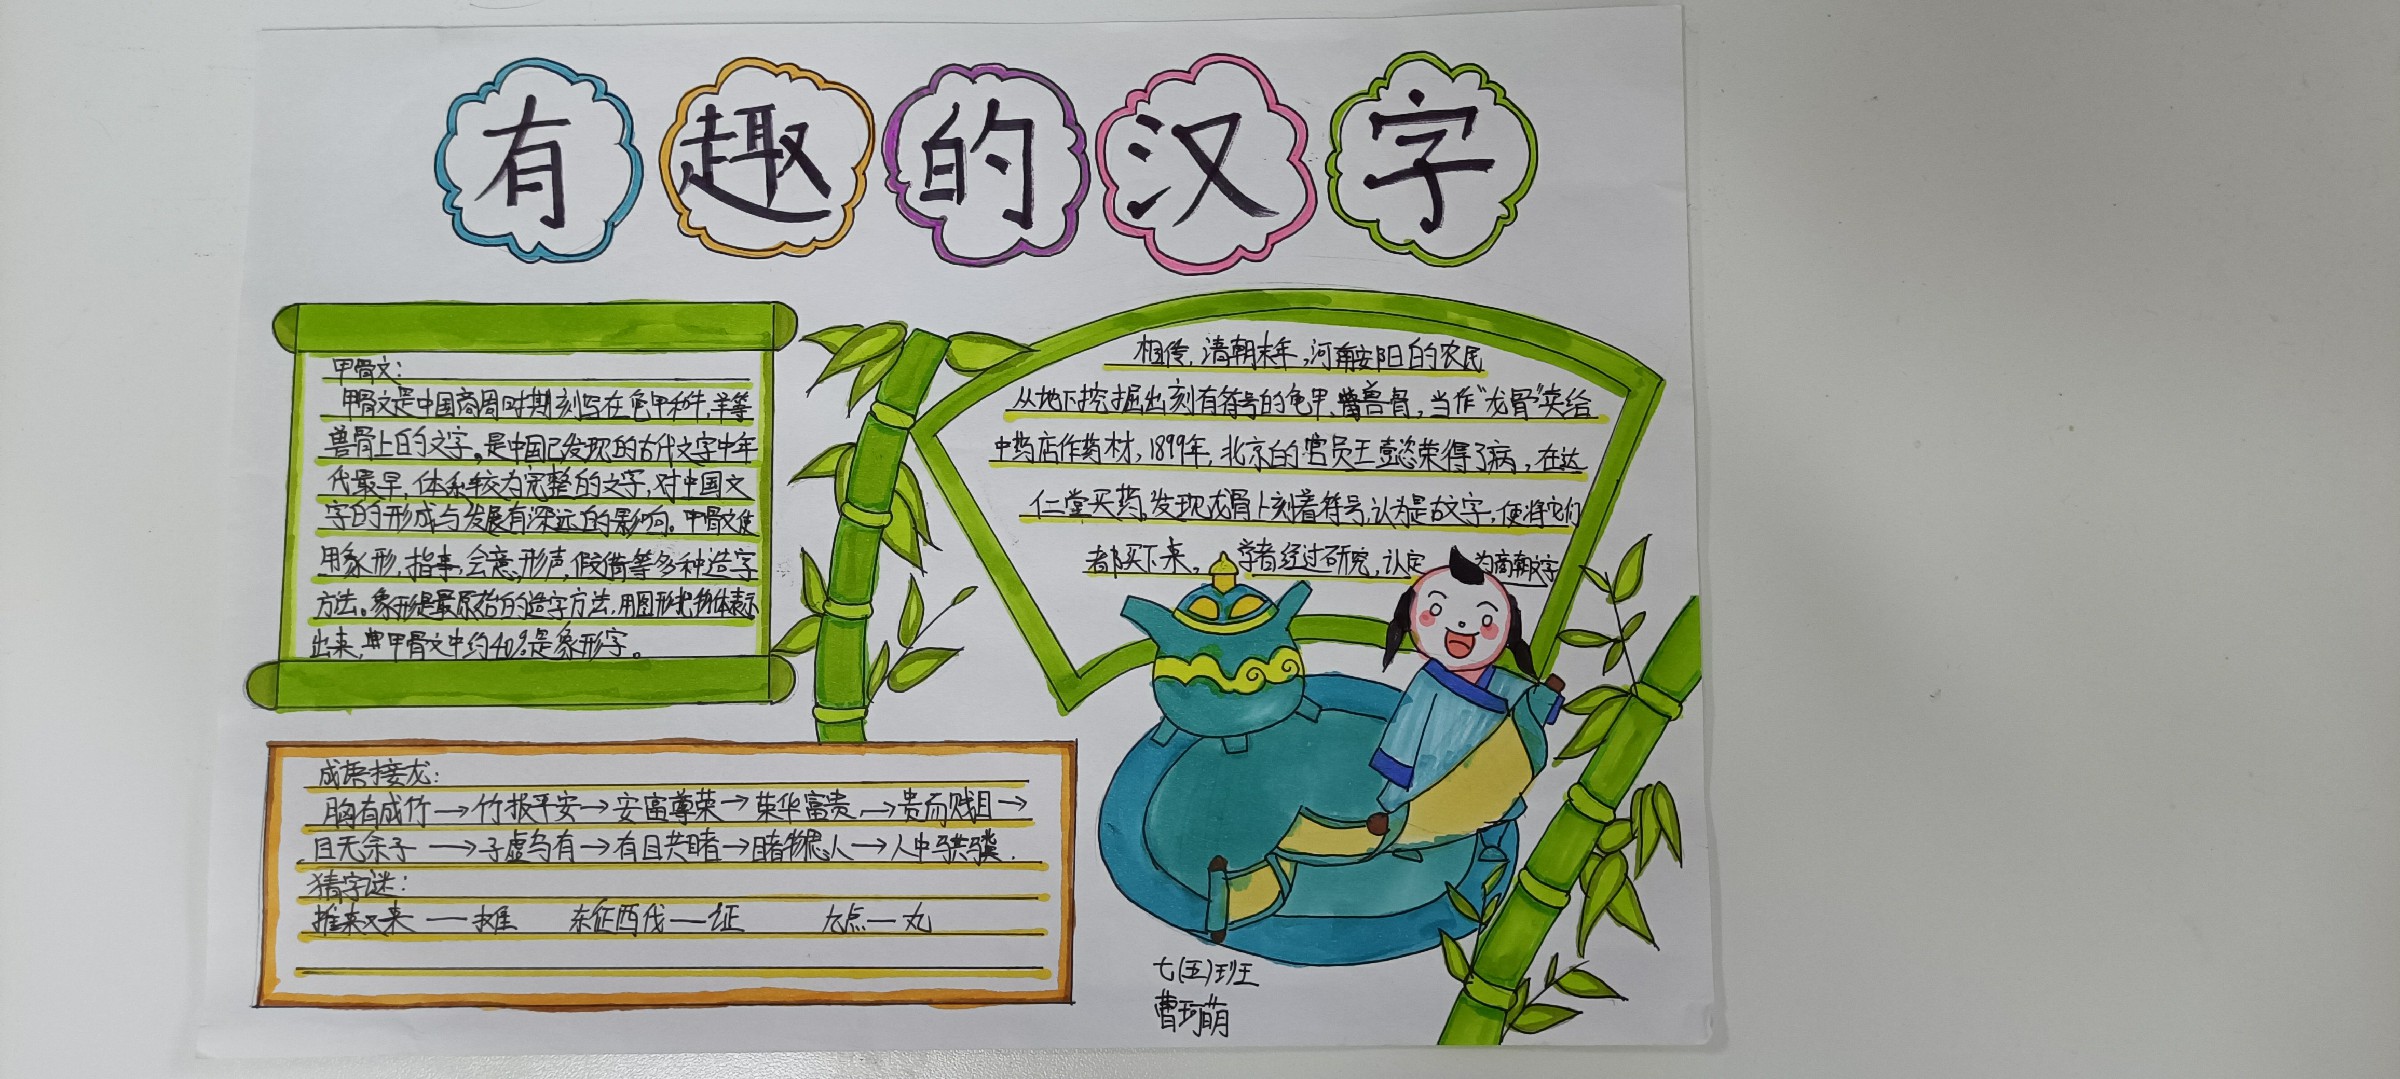 有趣的汉字
甲骨文:
甲骨文是中国商周时期刻写在龟甲和牛,羊等
兽骨上的文字。是中国已发现的古代文字中年
代最早,体系较为完整的文字,对中国文
字的形成与发展有深远的影响。甲骨文使
用象形,指事,会意,形声,假借等多种造字
方法。象形是最原始的造字方法,用图形把物体表示
出来,甲骨文中约40%是象形字。
相传,清朝末年,河南安阳的农民
从地下挖掘出刻有符号的龟甲、兽骨,当作“龙骨”卖给
中药店作药材,1899年,北京的官员王懿荣得了病,在达
仁堂买药,发现龙骨上刻着符号,认为是古文字,便将它们
都买下来,学者经过研究,认定为商朝文字
成语接龙:
胸有成竹→竹报平安→安富尊荣→荣华富贵→贵而贱目→
目无余子→子虚乌有→有目共睹→睹物思人→人中骐骥.
猜字谜:
推来又来—摊 东征西伐—证 九点—丸
七(五)班
曹珂萌